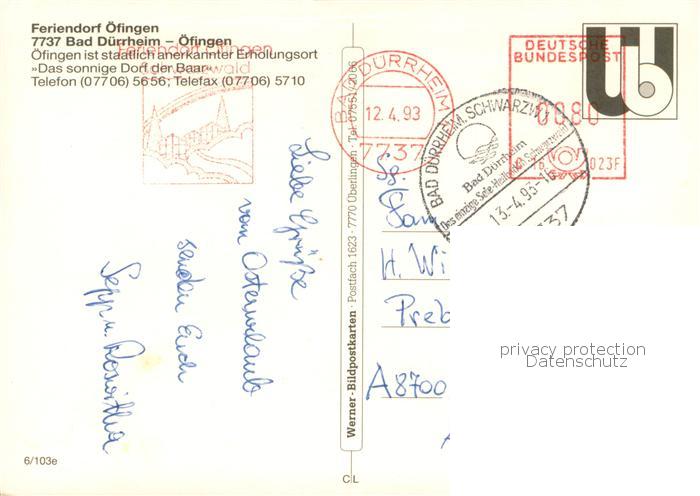 Feriendorf Öfingen
7737 Bad Dürrheim – Öfingen
Öfingen ist staatlich anerkannter Erholungsort
»Das sonnige Dorf der Baar«
Telefon (07706) 5656; Telefax (07706) 5710
Feriendorf Öfingen
BAD DÜRRHEIM
12.4.93
7737
DEUTSCHE
BUNDESPOST
0080
023F
BAD DÜRRHEIM, SCHWARZW
Bad Dürrheim
Das einzige Sole-Heilbad im Schwarzwald
13.-4.93-16
7737
Liebe Grüße
vom Osterurlaub
senden Euch
Sepp u. Roswitha
Werner-Bildpostkarten · Postfach 1623 · 7770 Überlingen · Tel. 07551/2066
H. Wi
A8700
privacy protection
Datenschutz
6/103e
C L